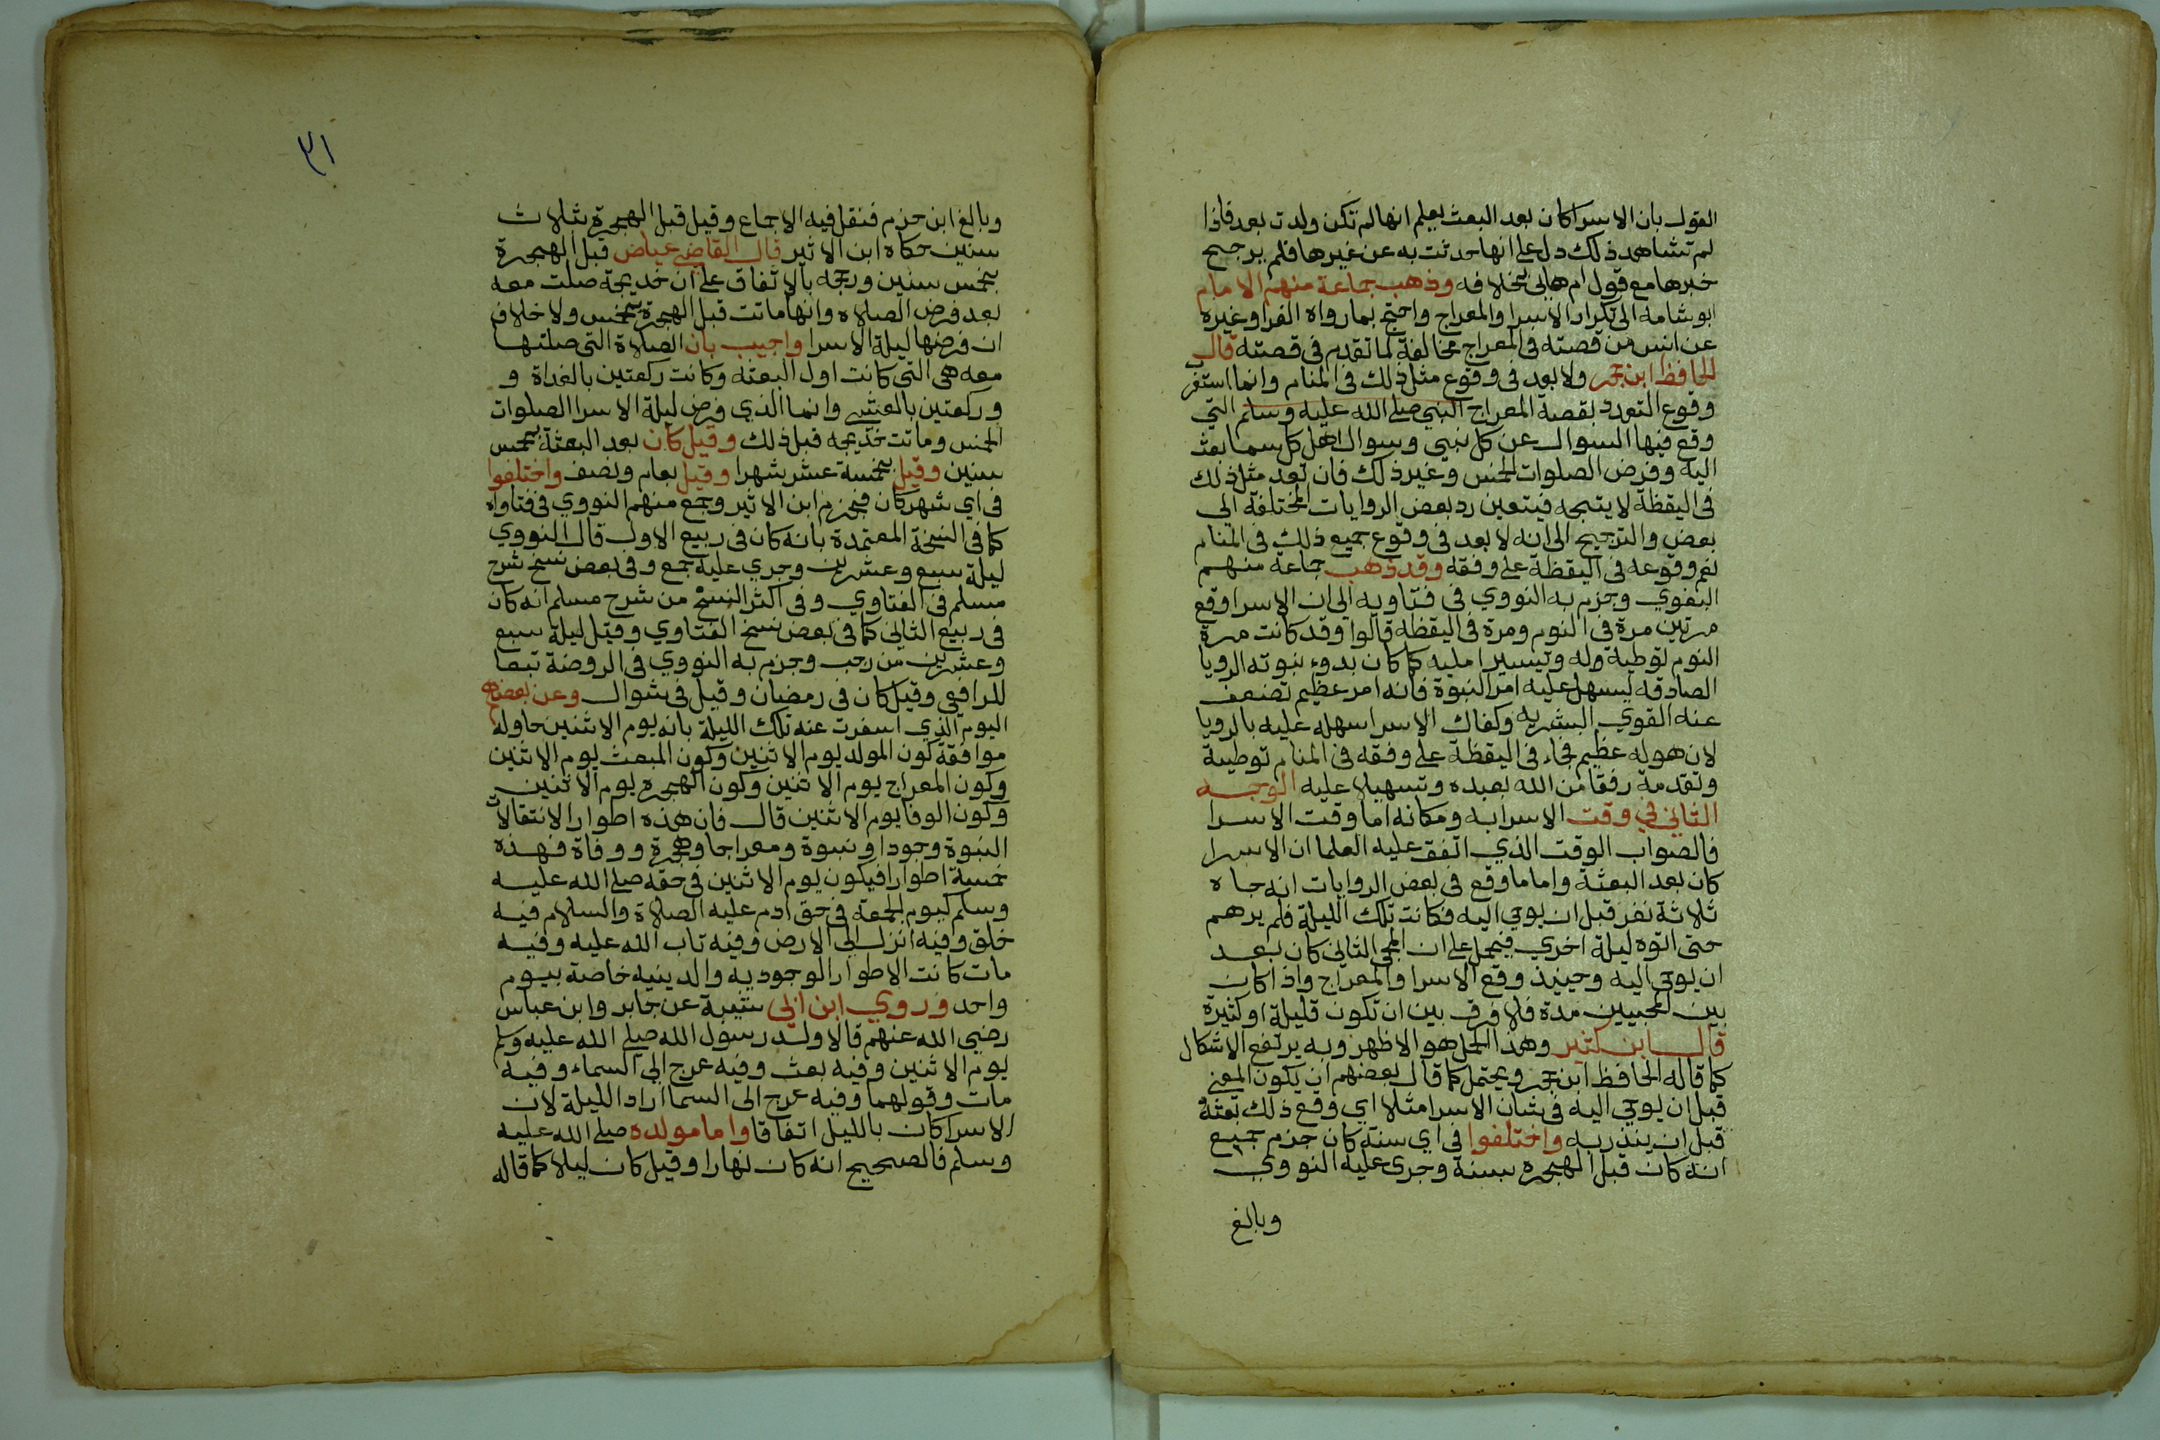 القول بان الاسرا كان بعد البعث يعلم انها لم تكن ولدت بعد فاذا
لم تشاهد ذلك دل على انها حدثت به عن غيرها فلم يرجح
خبرها مع قول ام هانى بخلافه وذهب جماعة منهم الامام
ابو شامه الى تكرار الاسرا والمعراج واحتج بما رواه الفرا وغيره
عن انس من قصته فى المعراج مخالفة لما تقدم فى قصته قال
الحافظ ابن حجر ولا بعد فى وقوع مثل ذلك فى المنام وانما استغر
وقوع التعدد بقصة المعراج النبي صلى الله عليه وسلم التي
وقع فيها السوال عن كل نبي وسوال اهل كل سما بعث
اليه وفرض الصلوات الخمس وغير ذلك فان تعد مثل ذلك
فى اليقظة لا يتجه فيتعين رد بعض الروايات المختلفة الى
بعض والترجيح الى انه لا بعد فى وقوع جميع ذلك فى المنام
ثم وقوعه فى اليقظة على وفقه وقد ذهب جماعة منهم
البغوي وجزم به النووي فى فتاويه الى ان الاسرا وقع
مرتين مرة فى النوم ومرة فى اليقظه قالوا وقد كانت مرة
النوم توطية وله وتيسيرا عليه كما كان بدوء نبوته الرويا
الصادقه ليسهل عليه امر النبوة فانه امر عظيم تضعف
عنه القوي البشريه وكذلك الاسرا سهله عليه بالرويا
لان هوله عظيم فجاء فى اليقظة على وفقه فى المنام توطية
وتقدمة رفقا من الله بعبده وتسهيلا عليه الوجه
الثاني في وقت الاسرا به ومكانه اما وقت الاسرا
فالصواب الوقت الذي اتفق عليه العلما ان الاسرا
كان بعد البعثة واما ما وقع فى بعض الروايات انه جاه
ثلاثة نفر قبل ان يوحي اليه فكانت تلك الليلة فلم يرهم
حتى اتوه ليلة اخري فيحمل على ان المجى الثانى كان بعد
ان يوحى اليه وحينيذ وقع الاسرا والمعراج واذا كان
بين المجيين مدة فلا فرق بين ان تكون قليلة او كثيرة
قال ابن كثير وهذا الحمل هو الاظهر وبه يرتفع الاشكال
كما قاله الحافظ ابن حجر ويحتمل كما قال بعضهم ان يكون المعنى
قبل ان يوحي اليه فى شان الاسرا مثلا اي وقع ذلك بغتة
قبل ان ينذر به واختلفوا فى اي سنة كان جزم جميع
انه كان قبل الهجره بسنة وجرى عليه النووي
وبالغ
٣١
وبالغ ابن حزم فنقل فيه الاجماع وقيل قبل الهجرة بثلاث
سنين حكاه ابن الاثير قال القاضي عياض قبل الهجرة
بخمس سنين ورجحه بالاتفاق على ان خديجة صلت معه
بعد فرض الصلاه وانها ماتت قبل الهجرة بخمس ولا خلاف
ان فرضها ليلة الاسرا واجيب بان الصلاة التى صلتها
معه هى التى كانت اول البعثه وكانت ركعتين بالغداة و
وركعتين بالعشى وانما الذي فرض ليلة الاسرا الصلوات
الخمس وماتت خديجه قبل ذلك وقيل كان بعد البعثة بخمس
سنين وقيل بخمسة عشر شهرا وقيل بعام ونصف واختلفوا
فى اي شهر كان فجزم ابن الاثير وجمع منهم النووي فى فتاواه
كما فى النسخة المعتمدة بانه كان فى ربيع الاول قال النووي
ليلة سبع وعشرين وجري عليه جمع وفى بعض نسخ شرح
مسلم فى الفتاوي وفى اكثر النسخ من شرح مسلم انه كان
فى ربيع الثانى كما فى بعض نسخ الفتاوي وقيل ليلة سبع
وعشرين من رجب وجزم به النووي فى الروضة تبعا
للرافعي وقيل كان فى رمضان وقيل فى شوال وعن بعضهم
اليوم الذي اسفرت عنه تلك الليلة بانه يوم الاثنين حاوله
موافقة كون المولد يوم الاثنين وكون المبعث يوم الاثنين
وكون المعراج يوم الاثنين وكون الهجره يوم الاثنين
وكون الوفا يوم الاثنين قال فان هذه اطوار الانتقالات
النبوة وجودا ونبوة ومعراجا وهجرة ووفاة فهذه
خمسة اطوار فيكون يوم الاثنين فى حقه صلى الله عليه
وسلم كيوم الجمعة فى حق ادم عليه الصلاة والسلام فيه
خلق وفيه انزل الى الارض وفيه تاب الله عليه وفيه
مات كانت الاطوار الوجوديه والدينيه خاصة بيوم
واحد وروي ابن ابي شيبة عن جابر وابن عباس
رضي الله عنهم قالا ولد رسول الله صلى الله عليه وسلم
يوم الاثنين وفيه بعث وفيه عرج الى السماء وفيه
مات وقولهما وفيه عرج الى السما اراد الليلة لان
الاسرا كان بالليل اتفاقا واما مولده صلى الله عليه
وسلم فالصحيح انه كان نهارا وقيل كان ليلا كما قاله